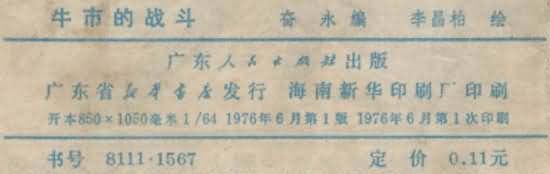 牛市的战斗 奋永编 李昌柏绘
广东人民出版社出版
广东省新华书店发行 海南新华印刷厂印刷
开本850×1050毫米1/64 1976年6月第1版 1976年6月第1次印刷
书号 8111·1567 定价 0.11元